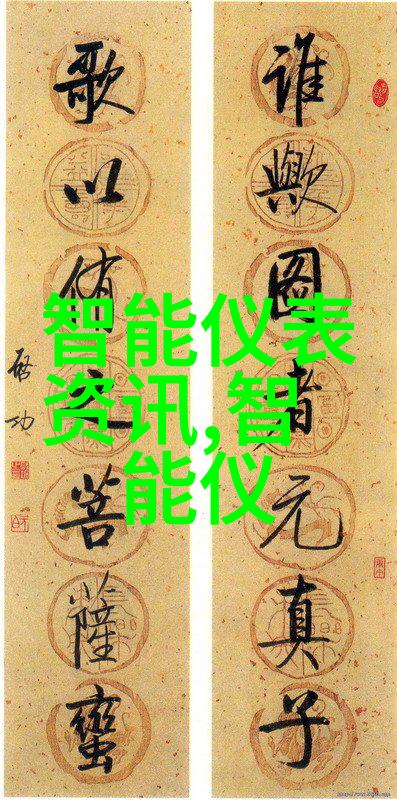 谁歟图者元真子
歌以侑之菩薩蠻
啓功
智能仪表
资讯,智
能仪